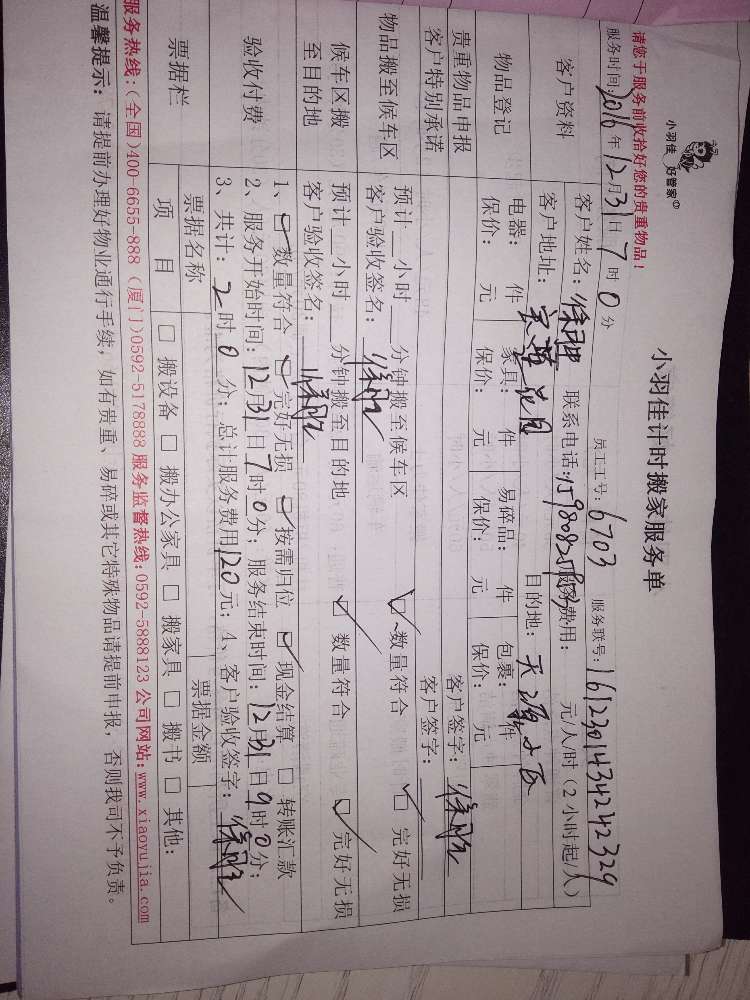 小羽佳 好管家
小羽佳计时搬家服务单
请您于服务前收拾好您的贵重物品!
员工工号: 6703 服务联号: 1612301434242329
服务时间: 2016年12月31日7时0分
客户资料 客户姓名: 联系电话: 服务费用: 元/人/时(2小时起/人)
客户地址: 目的地:
物品登记 电器: 件 家具: 件 易碎品: 件 包裹: 件
保价: 元 保价: 元 保价: 元 保价: 元
贵重物品申报 客户签字:
客户特别承诺 客户签字:
物品搬至候车区 预计 小时 分钟搬至候车区 数量符合 完好无损
客户验收签名:
候车区搬至目的地 预计 小时 分钟搬至目的地 数量符合 完好无损
客户验收签名:
验收付费 1、 数量符合 完好无损 按需归位 现金结算 □ 转账汇款
2、服务开始时间: 12月31日7时0分; 服务结束时间: 12月31日9时0分;
3、共计: 2时0分; 总计服务费用120元; 4、客户验收签字:
票据栏 票据名称 票据金额
项 目 □ 搬设备 □ 搬办公家具 □ 搬家具 □ 搬书 □ 其他:
服务热线:(全国)400-6655-888 (厦门)0592-5178888 服务监督热线:0592-5888123 公司网站:www.xiaoyujia.com
温馨提示: 请提前办理好物业通行手续, 如有贵重、易碎或其它特殊物品请提前申报, 否则我司不予负责。